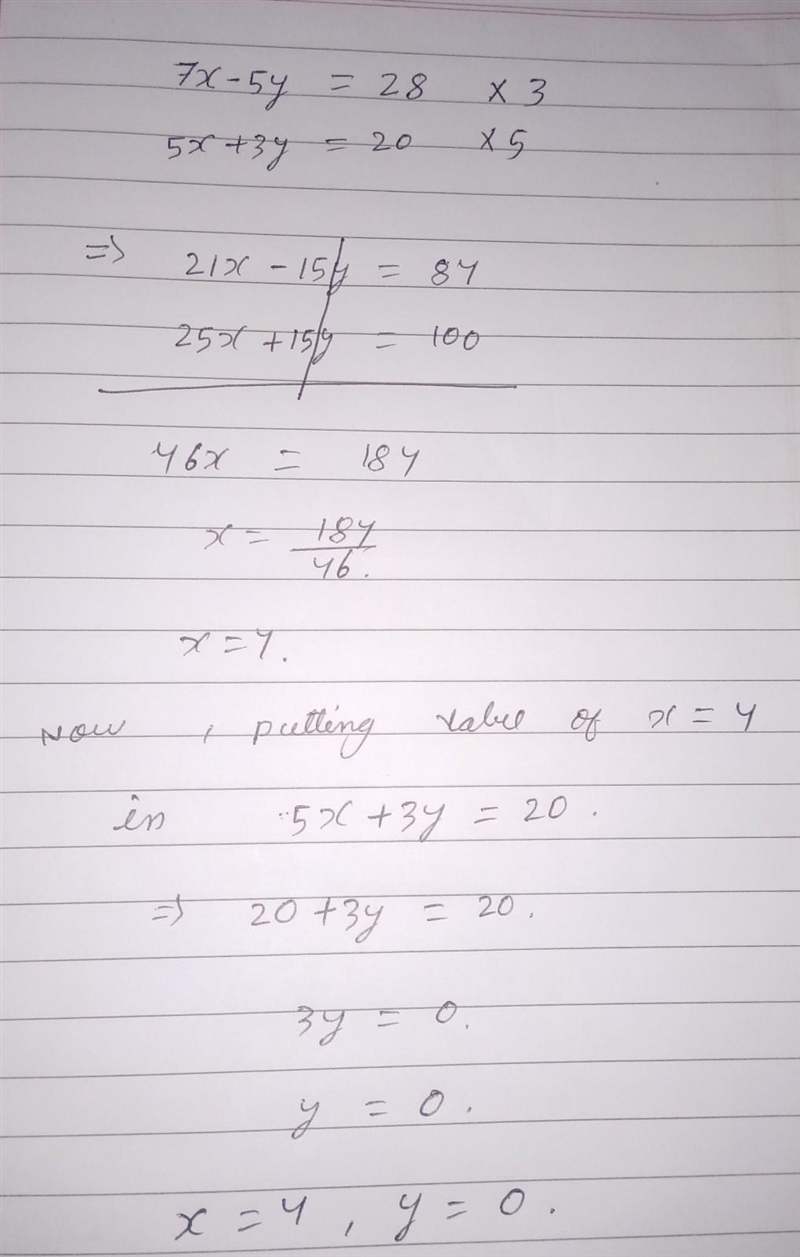 7x-5y = 28 × 3
5x+3y = 20 ×5
=> 21x - 15y = 84
25x + 15y = 100
46x = 184
x = 184/46.
x = 4.
Now, putting value of x = 4
in 5x + 3y = 20.
=> 20 + 3y = 20.
3y = 0.
y = 0.
x = 4, y = 0.